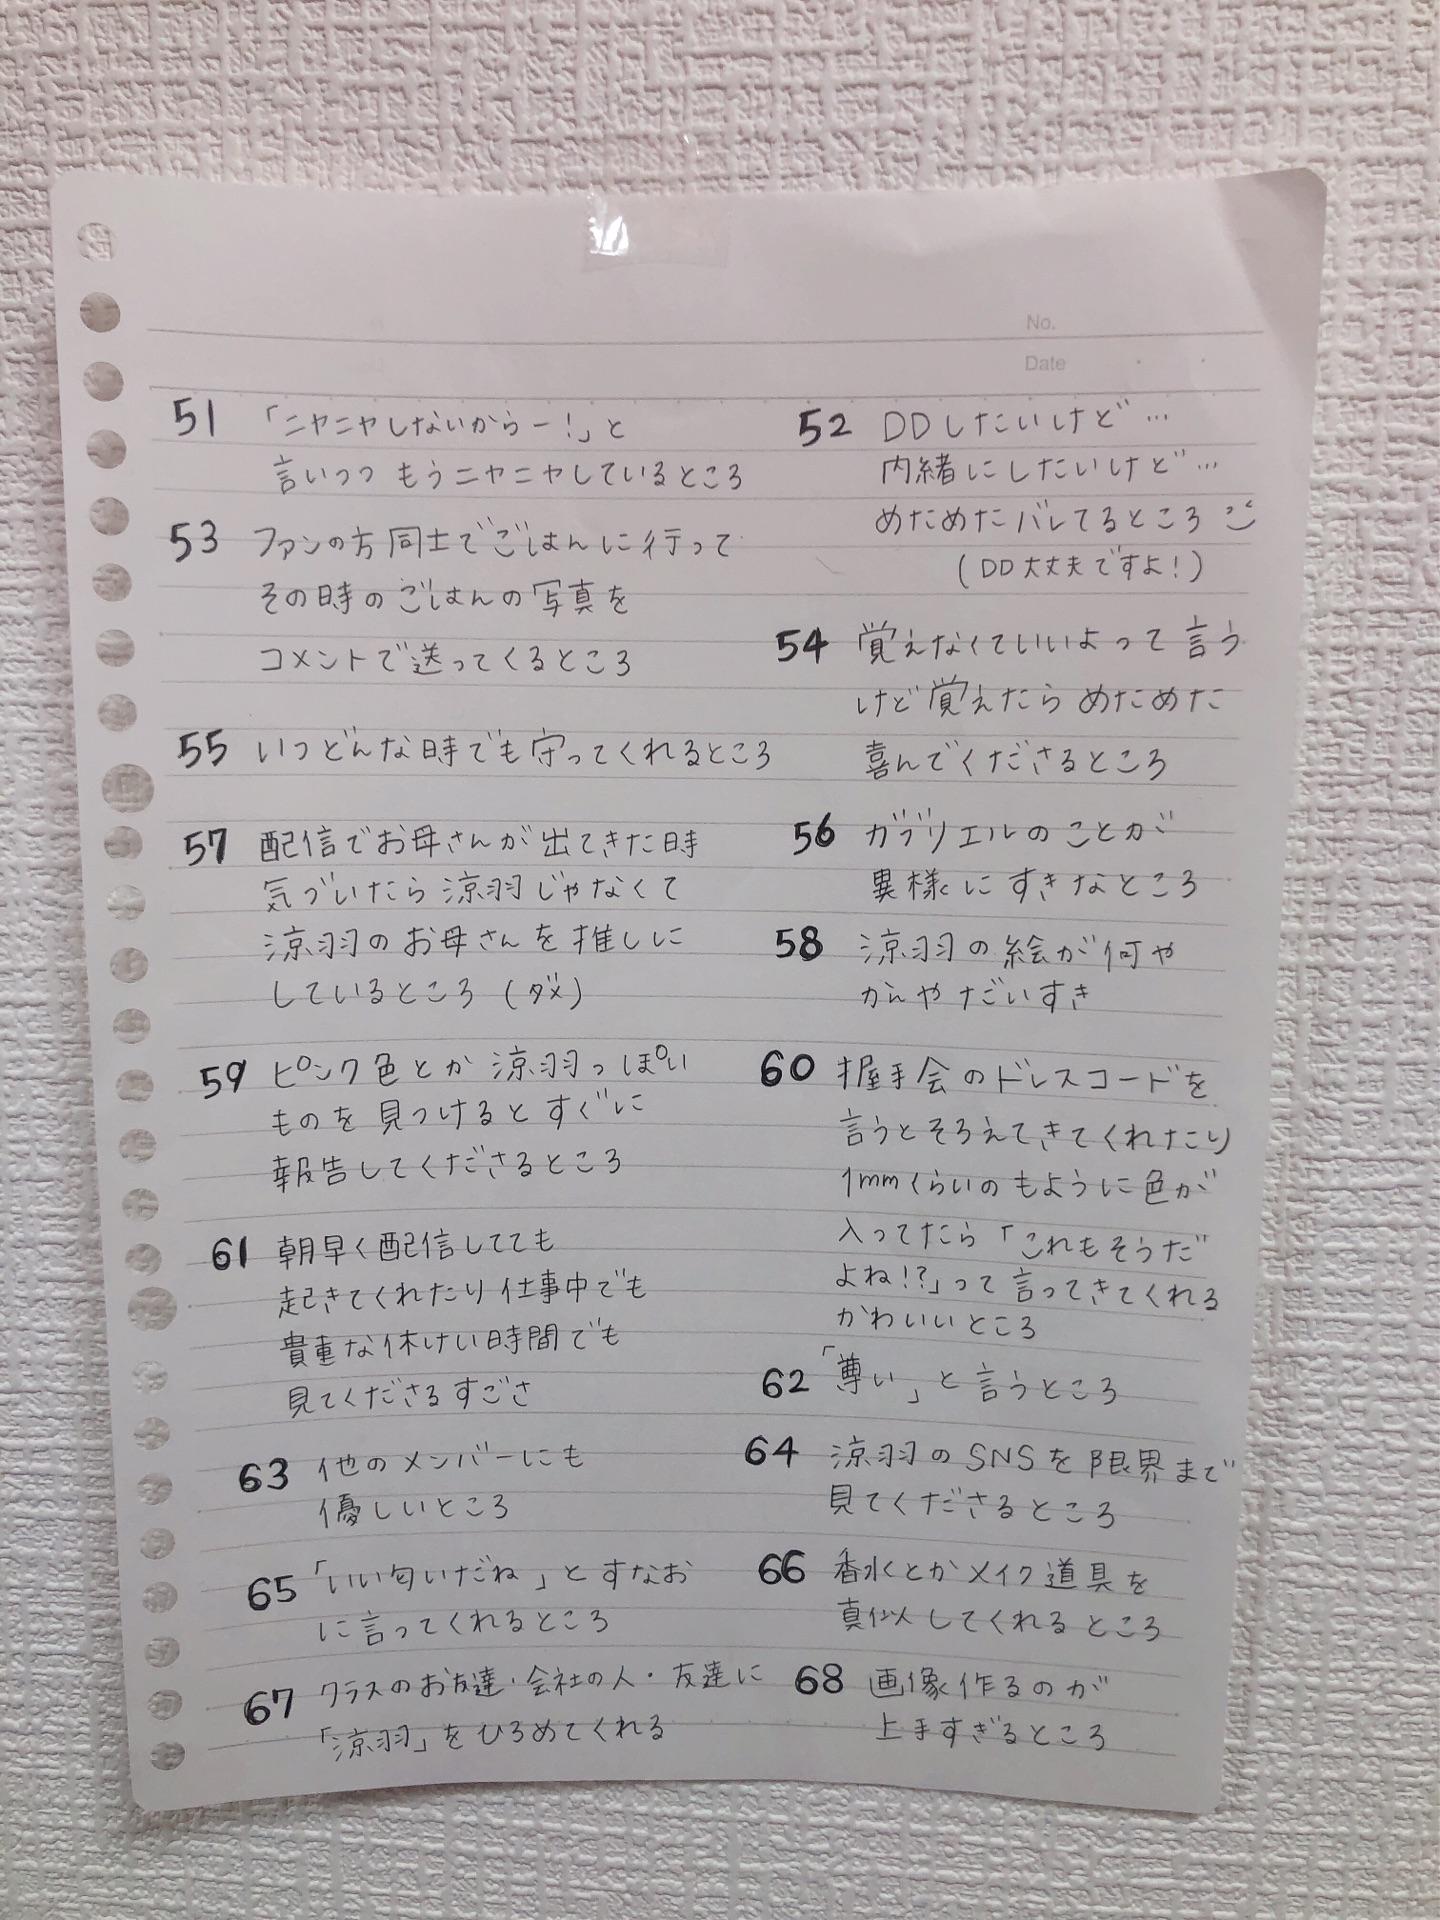 No.
Date
51 「ニヤニヤしないからー!」と
言いつつ もうニヤニヤしているところ
52 DDしたいけど…
内緒にしたいけど…
めためたバレてるところ
(DD大丈夫ですよ!)
53 ファンの方同士でごはんに行って
その時のごはんの写真を
コメントで送ってくるところ
54 覚えなくていいよって言う
けど覚えたらめためた
喜んでくださるところ
55 いつどんな時でも守ってくれるところ
56 ガブリエルのことが
異様にすきなところ
57 配信でお母さんが出てきた時
気づいたら涼羽じゃなくて
涼羽のお母さんを推しに
しているところ (ダメ)
58 涼羽の絵が何や
かんやだいすき
59 ピンク色とか涼羽っぽい
ものを見つけるとすぐに
報告してくださるところ
60 握手会のドレスコードを
言うとそろえてきてくれたり
1mmくらいのもように色が
入ってたら「これもそうだ
よね!?」って言ってきてくれる
かわいいところ
61 朝早く配信してても
起きてくれたり仕事中でも
貴重な休けい時間でも
見てくださるすごさ
62 「尊い」と言うところ
63 他のメンバーにも
優しいところ
64 涼羽のSNSを限界まで
見てくださるところ
65 「いい匂いだね」とすなお
に言ってくれるところ
66 香水とかメイク道具を
真似してくれるところ
67 クラスのお友達・会社の人・友達に
「涼羽」をひろめてくれる
68 画像作るのが
上手すぎるところ